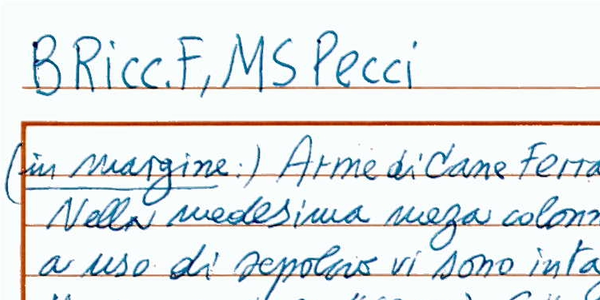 BRicc.F, MS Pecci
(in margine:) Arme di Cane Ferra
Nella medesima meza colonn
a uso di sepolcro vi sono inta